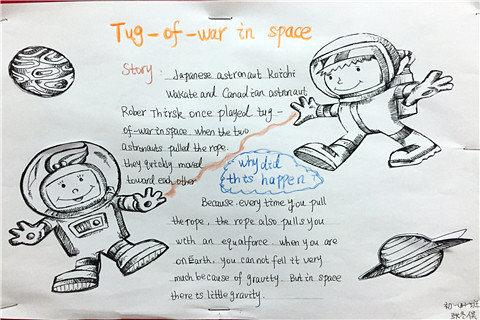 Tug-of-war in space
Story: Japanese astronaut Koichi
Wakate and Canadian astronaut
Rober Thirsk once played tug-
of-war in space. when the two
astronauts pulled the rope.
they quickly moved
toward each other
why did
this happen?
Because every time you pull
the rope. the rope also pulls you
with an equal force. when you are
on Earth. you can not fell it very
much because of gravity. But in space
there is little gravity.